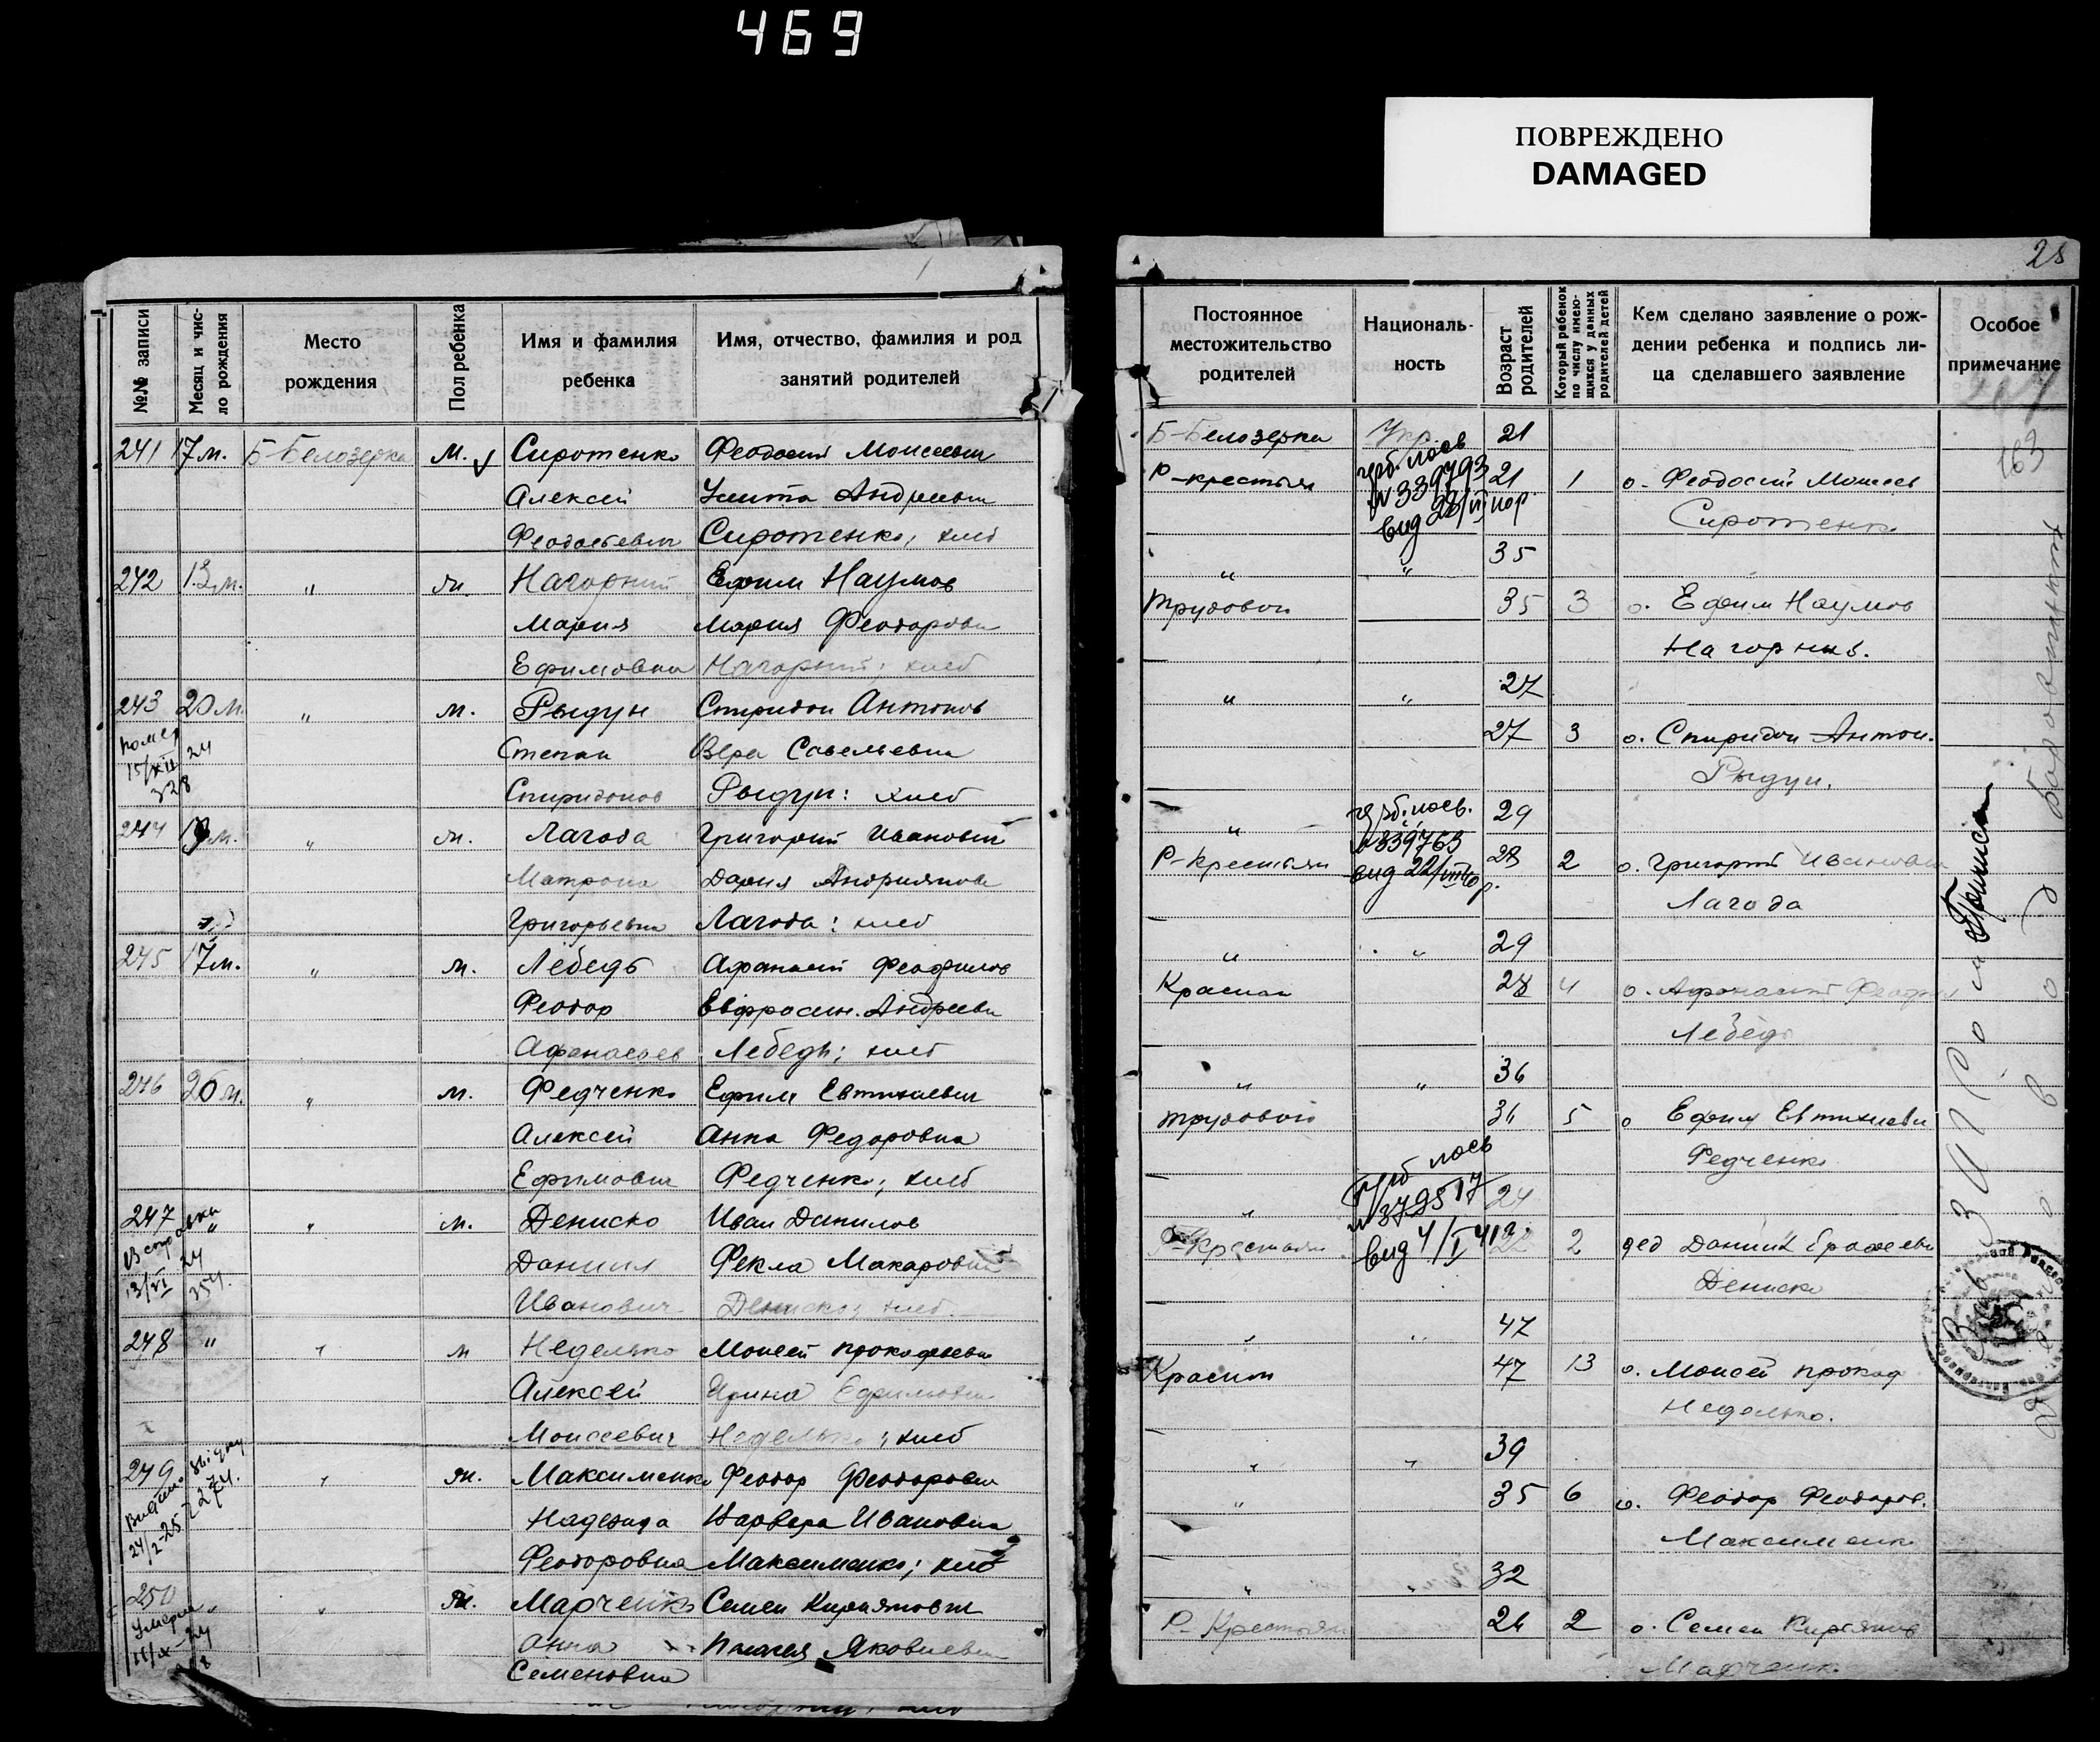 469
ПОВРЕЖДЕНО
DAMAGED
28
№№ записи
Месяц и чис-
ло рождения
Место
рождения
Пол ребенка
Имя и фамилия
ребенка
Имя, отчество, фамилия и род
занятий родителей
241 17 м. Б-Белозерка м. Сиротенко Феодосий Моисеевич
Алексей Улита Андреевна
Феодосьевич Сиротенко; хлеб
242 13 м. " ж. Нагорный Ефим Наумов
Мария Мария Феодоровн
Ефимовна Нагорный; хлеб
243 20 м. " м. Рыдун Спиридон Антонов
помер Степан Вера Савельевна
15/XII 24
328 Спиридонов Рыдун: хлеб
244 19 м. " ж. Лагода Григорий Иванович
Матрона Дария Андриянов
Григорьевна Лагода: хлеб
245 17 м. " м. Лебедь Афанасий Феофилов
Феодор Евфросин. Андреевн
Афанасьев Лебедь; хлеб
246 26 м. " м. Федченко Ефим Евтихиевич
Алексей Анна Федоровна
Ефимович Федченко; хлеб
247 " " м. Дениско Иван Данилов
В справки
13/VI 24
354.
Даниил Фекла Макаровн
Иванович Дениско; хлеб.
248 " " м Неделько Моисей Прокофьевич
Алексей Ирина Ефимовн
Моисеевич Неделько; хлеб
249 " ж. Максименко Феодор Феодорович
24/2-25 274.
Надежда Варвара Ивановна
Феодоровна Максименко; хлеб
250 " " ж. Марченко Семен Кириянович
Умерла
Анна Пелагея Яковлевн
Семеновна
Постоянное
местожительство
родителей
Националь-
ность
Возраст
родителей
Который ребенок
по числу имею-
щихся у данных
родителей детей
Кем сделано заявление о рож-
дении ребенка и подпись ли-
ца сделавшего заявление
Особое
примечание
163
Б-Белозерка Укр. 21
Р-крестьян 21 1 о. Феодосий Моисеев
герб. посв
N 339793
вид 28/VII 40р
Сиротенко
" " 35
Трудовой 35 3 о. Ефим Наумов
Нагорный.
" " 27
27 3 о. Спиридон Антон.
Рыдун.
" 29
герб. посв.
N 339763
вид 22/VIII 40 р.
Р-Крестьян 28 2 о. Григорий Иванович
Лагода
" " 29
Красная 28 4 о. Афанасий Феофил
Лебедь
" " 36
трудовой 36 5 о Ефим Евтихиевич
Федченко
" 24
герб посв
N 379517
вид 4/I 41 г.
Р-Крестьян 22 2 дед Даниил Ерофеевич
Дениско
" " 47
Красная 47 13 о. Моисей Прокоф
Неделько.
" " 39
" 35 6 о. Феодор Феодоров.
Максименко
" " 32
Р-Крестьян 26 2 о. Семен Кириянов
Марченко